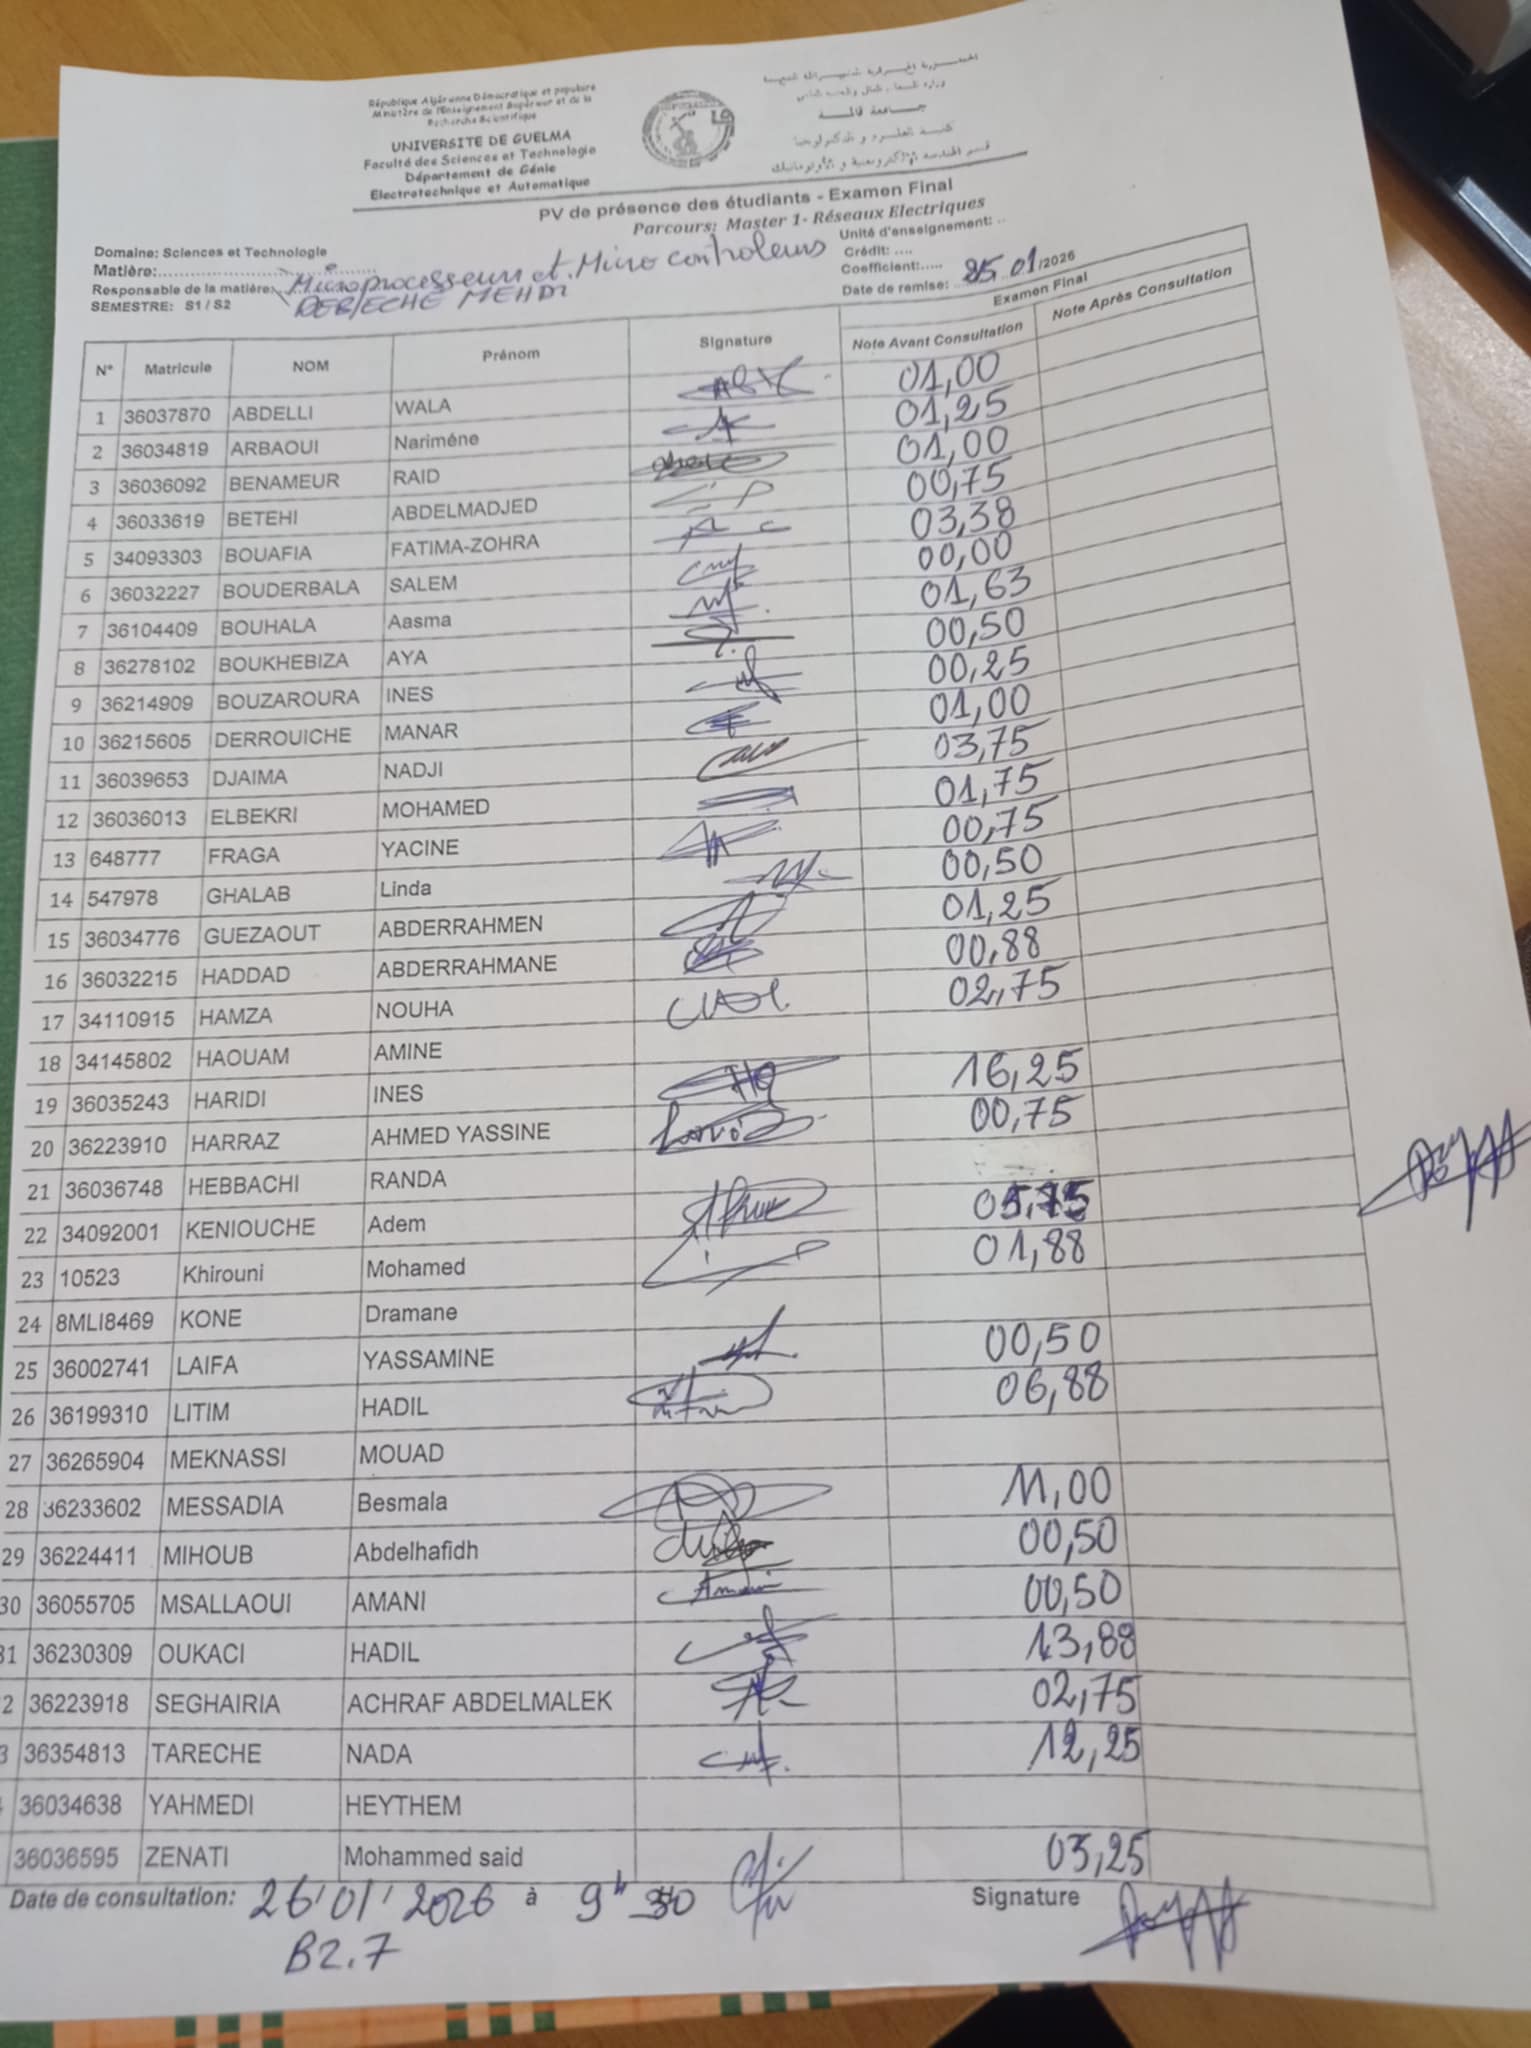 République Algérienne Démocratique et populaire
Ministère de l'Enseignement Supérieur et de la
Recherche Scientifique
UNIVERSITE DE GUELMA
Faculté des Sciences et Technologie
Département de Génie
Electrotechnique et Automatique
PV de présence des étudiants - Examen Final
Parcours: Master 1- Réseaux Electriques
Domaine: Sciences et Technologie
Unité d'enseignement: ..
Matière:.... Microprocesseurs et Micro controleurs
Crédit: ....
Responsable de la matière: MEHDI
Coefficient:.....
SEMESTRE: S1 / S2
Date de remise: 25 01/2026
N° Matricule NOM Prénom Signature Examen Final
Note Avant Consultation Note Après Consultation
1 36037870 ABDELLI WALA 01,00
2 36034819 ARBAOUI Nariméne 01,25
3 36036092 BENAMEUR RAID 01,00
4 36033619 BETEHI ABDELMADJED 00,75
5 34093303 BOUAFIA FATIMA-ZOHRA 03,38
6 36032227 BOUDERBALA SALEM 00,00
7 36104409 BOUHALA Aasma 01,63
8 36278102 BOUKHEBIZA AYA 00,50
9 36214909 BOUZAROURA INES 00,25
10 36215605 DERROUICHE MANAR 01,00
11 36039653 DJAIMA NADJI 03,75
12 36036013 ELBEKRI MOHAMED 01,75
13 648777 FRAGA YACINE 00,75
14 547978 GHALAB Linda 00,50
15 36034776 GUEZAOUT ABDERRAHMEN 01,25
16 36032215 HADDAD ABDERRAHMANE 00,88
17 34110915 HAMZA NOUHA 02,75
18 34145802 HAOUAM AMINE
19 36035243 HARIDI INES 16,25
20 36223910 HARRAZ AHMED YASSINE 00,75
21 36036748 HEBBACHI RANDA
22 34092001 KENIOUCHE Adem
23 10523 Khirouni Mohamed 01,88
24 8MLI8469 KONE Dramane
25 36002741 LAIFA YASSAMINE 00,50
26 36199310 LITIM HADIL 06,88
27 36265904 MEKNASSI MOUAD
28 36233602 MESSADIA Besmala 11,00
29 36224411 MIHOUB Abdelhafidh 00,50
30 36055705 MSALLAOUI AMANI 00,50
31 36230309 OUKACI HADIL 13,88
2 36223918 SEGHAIRIA ACHRAF ABDELMALEK 02,75
3 36354813 TARECHE NADA 12,25
36034638 YAHMEDI HEYTHEM
36036595 ZENATI Mohammed said 03,25
Date de consultation: 26/01/2026 à 9h 30
Signature
B2.7